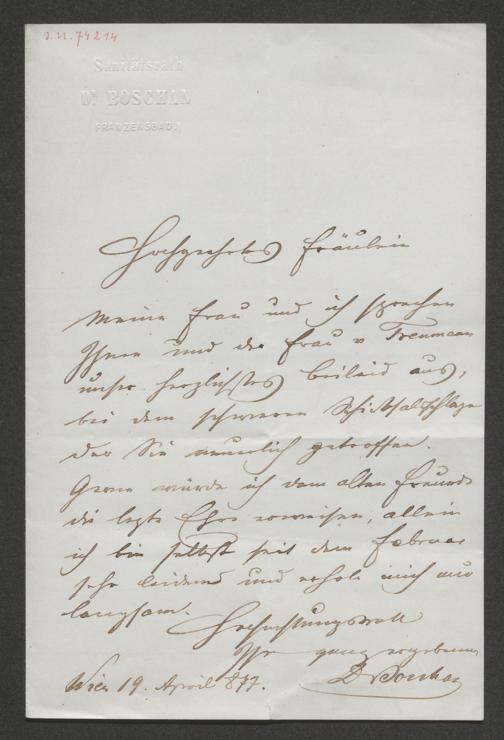 J.N. 74214
Sanitätsrath
Dr BOSCHAN
FRANZENSBAD.
Hochgeehrtes Fräulein
Meine Frau und ich sprechen
Ihnen und der Frau v
unser herzlichstes Beileid aus,
bei dem schweren Schicksalsschlage
der Sie neuerlich getroffen.
Gerne würde ich dem alten Freunde
die letzte Ehre erweisen, allein
ich bin selbst seit dem Februar
sehr leidend und erhole mich nur
langsam.
Hochachtungsvoll
Ihr ganz ergebener
Wien 19. April 877. Dr Boschan